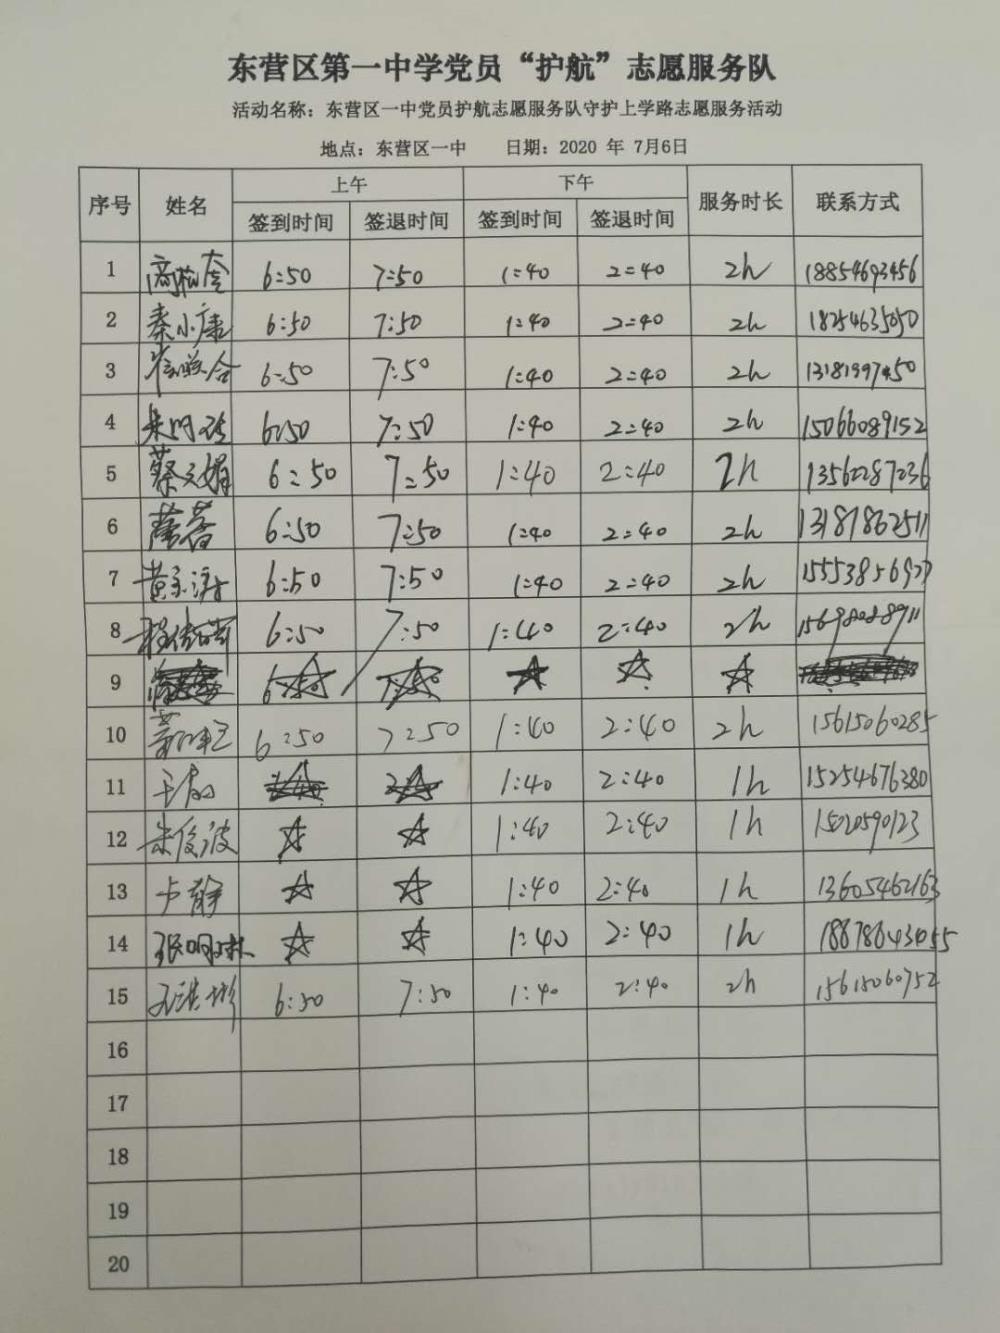 东营区第一中学党员“护航”志愿服务队
活动名称：东营区一中党员护航志愿服务队守护上学路志愿服务活动
地点：东营区一中 日期：2020 年 7月6日
序号 姓名 上午 下午 服务时长 联系方式
签到时间 签退时间 签到时间 签退时间
1 6:50 7:50 1:40 2:40 2h 18854693456
2 秦小康 6:50 7:50 1:40 2:40 2h 18254635050
3 崔联合 6:50 7:50 1:40 2:40 2h 13181997450
4 6:50 7:50 1:40 2:40 2h 15066089152
5 蔡文娟 6:50 7:50 1:40 2:40 2h 13562287236
6 6:50 7:50 1:40 2:40 2h 13181862511
7 6:50 7:50 1:40 2:40 2h
8 6:50 7:50 1:40 2:40 2h 15698088911
9
10 6:50 7:50 1:40 2:40 2h 15615060285
11 1:40 2:40 1h 15254676380
12 朱俊波 1:40 2:40 1h 15020590123
13 卢静 1:40 2:40 1h 13605462163
14 张明林 1:40 2:40 1h
15 6:50 7:50 1:40 2:40 2h 15615060752
16
17
18
19
20